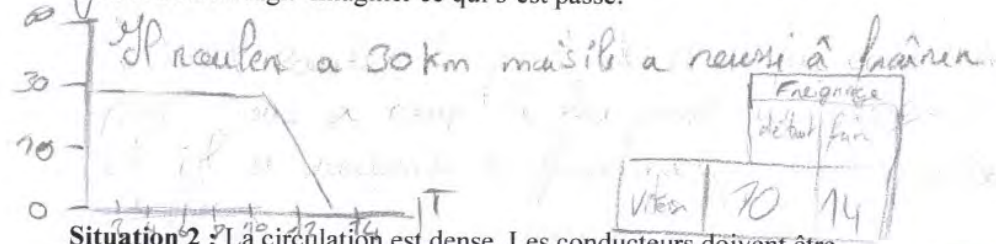 V
Il roulen a 30 km mais il a reussi à fraînen
30
10
0
T
Freignage
début fin
Vitesse 10 14
Situation 2 : La circulation est dense. Les conducteurs doivent être